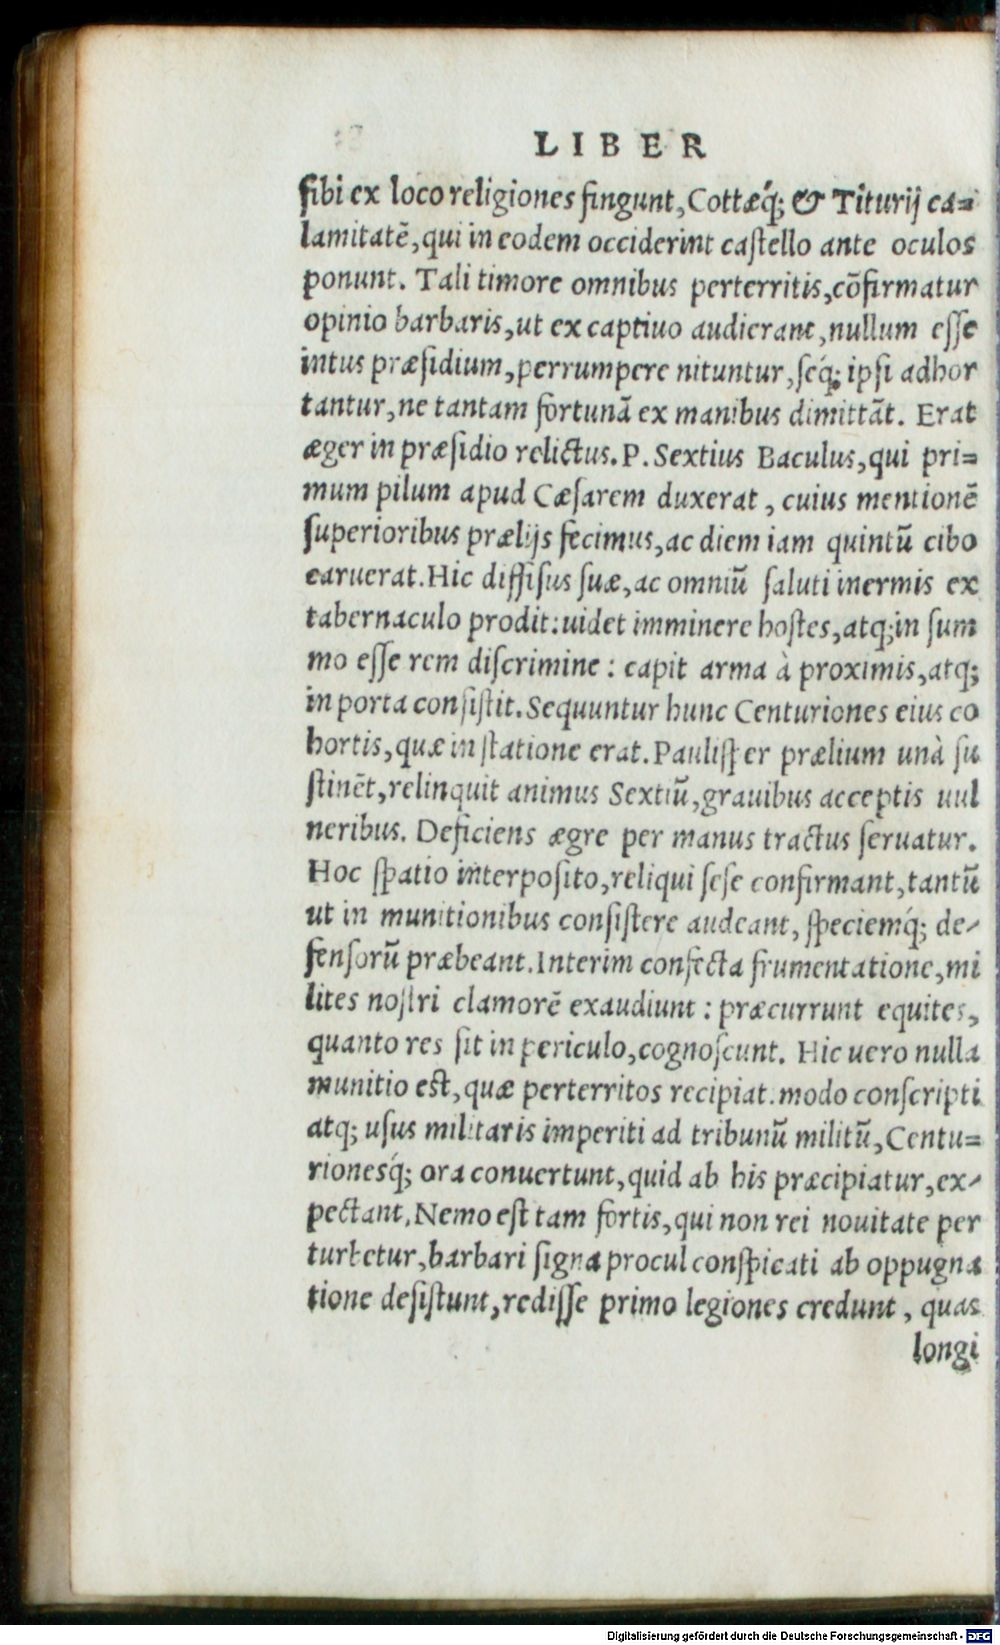 LIBER
ſibi ex loco religiones fingunt, Cottæq́; & Titurij ca=
lamitatē, qui in eodem occiderint caſtello ante oculos
ponunt. Tali timore omnibus perterritis, cōfirmatur
opinio barbaris, ut ex captiuo audierant, nullum eſſe
intus præſidium, perrumpere nituntur, ſeq́; ipſi adhor
tantur, ne tantam fortunā ex manibus dimittāt. Erat
æger in præſidio relictus. P. Sextius Baculus, qui pri=
mum pilum apud Cæſarem duxerat, cuius mentionē
ſuperioribus prælijs fecimus, ac diem iam quintū cibo
caruerat. Hic diffiſus ſuæ, ac omniū ſaluti inermis ex
tabernaculo prodit: uidet imminere hoſtes, atq; in ſum
mo eſſe rem diſcrimine: capit arma à proximis, atq;
in porta conſiſtit. Sequuntur hunc Centuriones eius co
hortis, quæ in ſtatione erat. Pauliſper prælium unà ſu
ſtinēt, relinquit animus Sextiū, grauibus acceptis uul
neribus. Deficiens ægre per manus tractus ſeruatur.
Hoc ſpatio interpoſito, reliqui ſeſe confirmant, tantū
ut in munitionibus conſiſtere audeant, ſpeciemq́; de-
fenſorū præbeant. Interim confecta frumentatione, mi
lites noſtri clamorē exaudiunt: præcurrunt equites,
quanto res ſit in periculo, cognoſcunt. Hic uero nulla
munitio eſt, quæ perterritos recipiat. modo conſcripti
atq; uſus militaris imperiti ad tribunū militū, Centu=
rionesq́; ora conuertunt, quid ab his præcipiatur, ex-
pectant. Nemo eſt tam fortis, qui non rei nouitate per
turbetur, barbari ſigna procul conſpicati ab oppugna
tione deſiſtunt, rediſſe primo legiones credunt, quas
longi
Digitalisierung gefördert durch die Deutsche Forschungsgemeinschaft - DFG